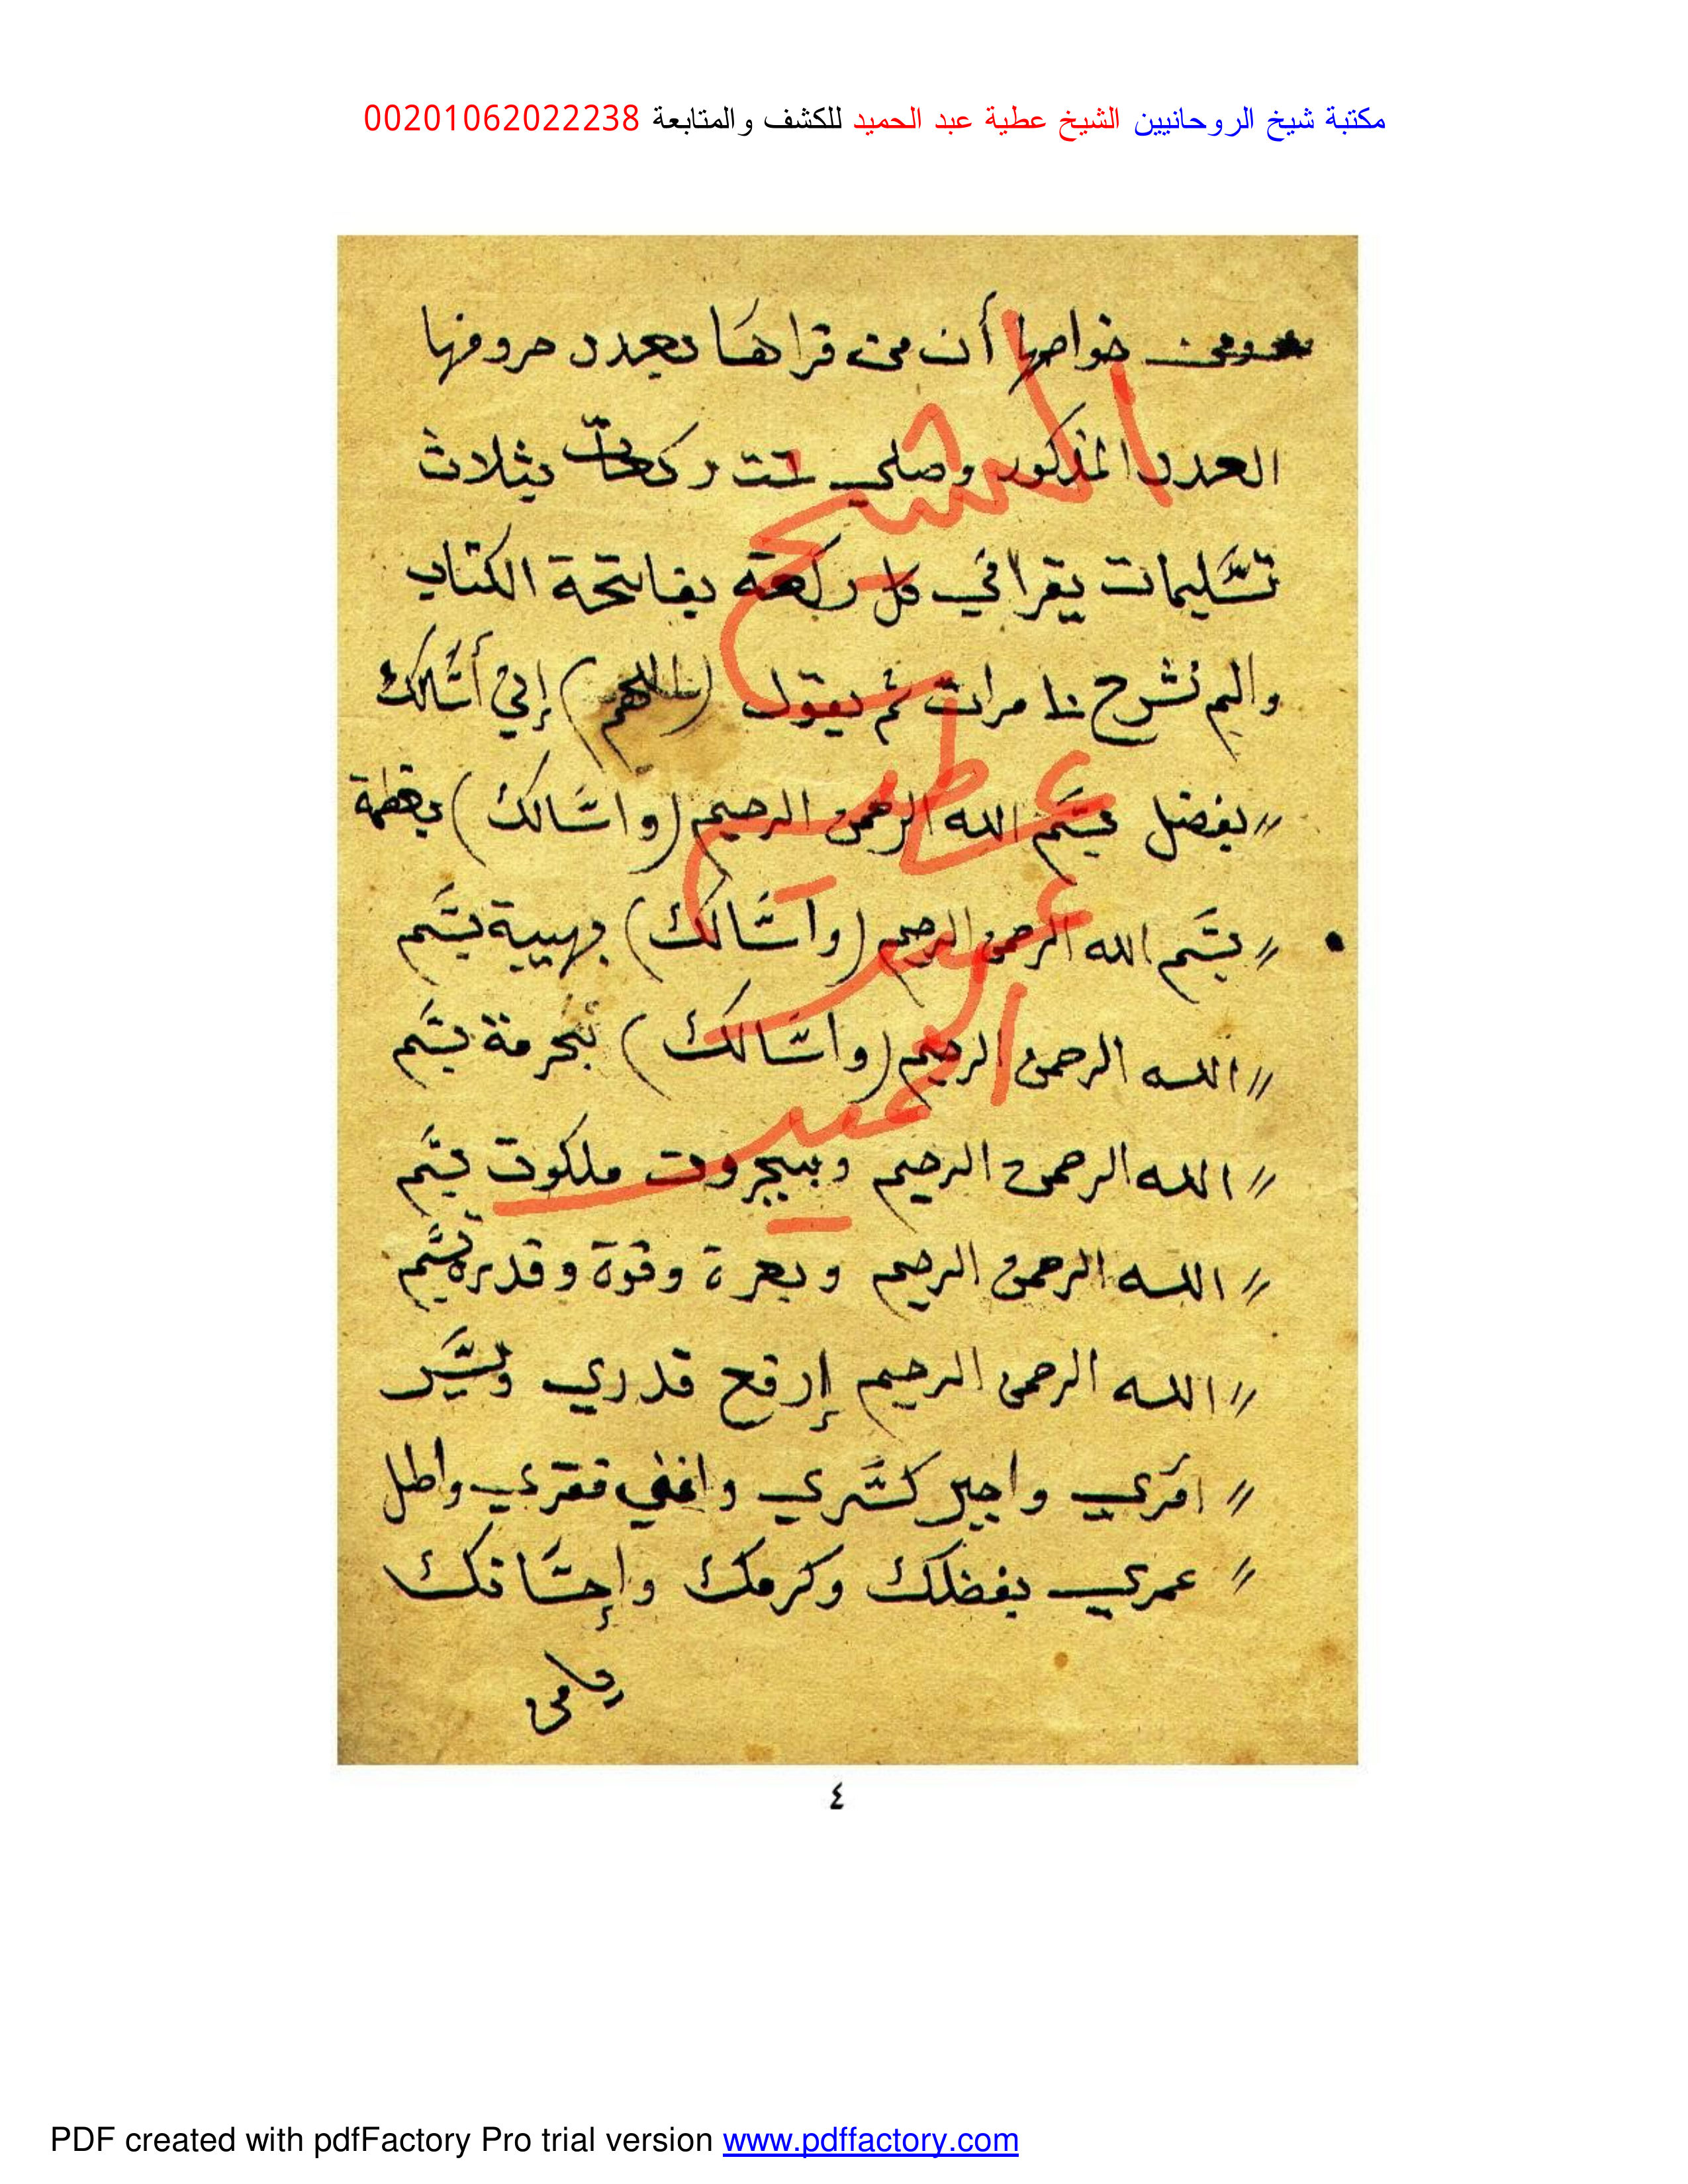 مكتبة شيخ الروحانيين الشيخ عطية عبد الحميد للكشف والمتابعة 00201062022238
ومن خواصها أن من قراها بعدد حروفها
العدد المذكور وصلي ست ركعات بثلاث
تسليمات يقرا في كل ركعة بفاتحة الكتاب
والم نشرح ١٠ مرات ثم يقول (اللهم) إني أسالك
بفضل بسم الله الرحمن الرحيم (واسالك) بعظمة
بسم الله الرحمن الرحيم (واسالك) بهيبة بسم
الله الرحمن الرحيم (واسالك) بحرمة بسم
الله الرحمن الرحيم وبجبروت ملكوت بسم
الله الرحمن الرحيم وبعزة وقوة وقدرة بسم
الله الرحمن الرحيم إرفع قدري ويسر
امري واجبر كسري واغني فقري واطل
عمري بفضلك وكرمك وإحسانك
الشيخ
عطيه
عبد
الحميد
٤
PDF created with pdfFactory Pro trial version www.pdffactory.com